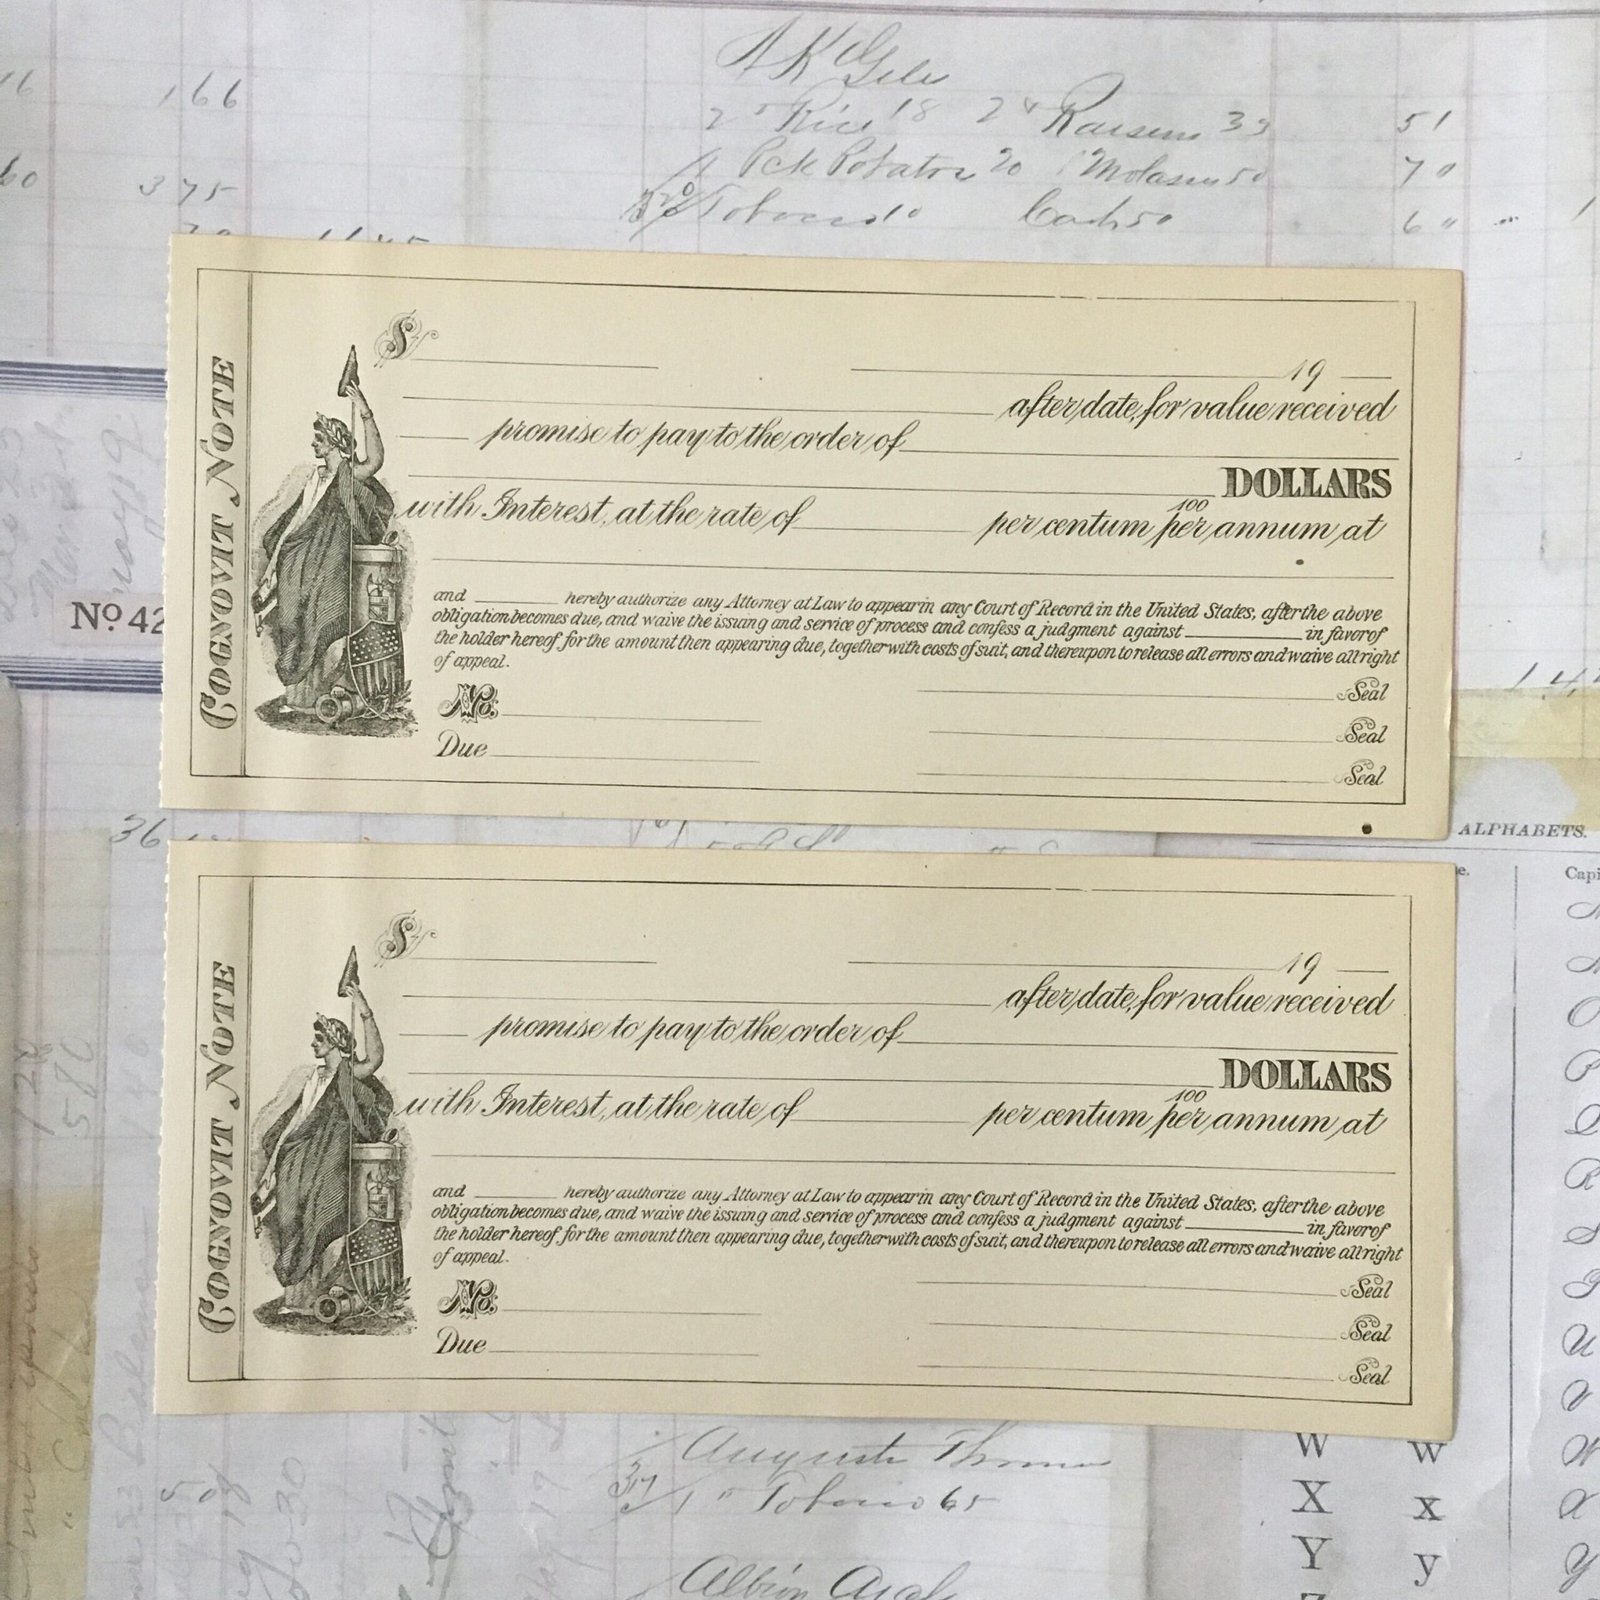 166
375
2 Rice 18 2 Raisens 51
1 Pck Potatoes 20 1 Molasses 50 70
Tobacco 10 Cash 50 60
No. 42
COGNOVIT NOTE
$
19
after date, for value received
promise to pay to the order of
DOLLARS
100
with Interest, at the rate of per centum per annum at
and hereby authorize any Attorney at Law to appear in any Court of Record in the United States, after the above
obligation becomes due, and waive the issuing and service of process and confess a judgment against in favor of
the holder hereof for the amount then appearing due, together with costs of suit, and thereupon to release all errors and waive all right
of appeal.
No.
Due
Seal
Seal
Seal
36
ALPHABETS.
Capi
COGNOVIT NOTE
$
19
after date, for value received
promise to pay to the order of
DOLLARS
100
with Interest, at the rate of per centum per annum at
and hereby authorize any Attorney at Law to appear in any Court of Record in the United States, after the above
obligation becomes due, and waive the issuing and service of process and confess a judgment against in favor of
the holder hereof for the amount then appearing due, together with costs of suit, and thereupon to release all errors and waive all right
of appeal.
No.
Due
Seal
Seal
Seal
O
P
Q
R
S
T
U
V
W w W
X x X
Y y Y
580
50
Tobacco 65
Albion